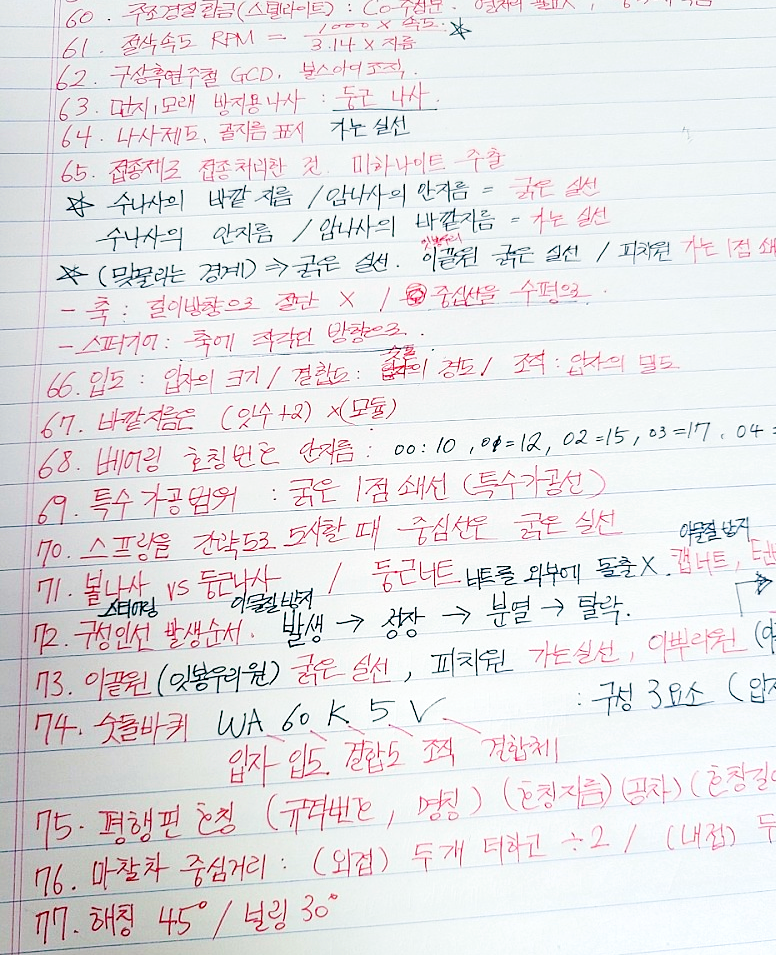 60. 주조경질합금(스텔라이트) : Co-주성분.
61. 절삭속도 RPM = 1000 × 속도 / 3.14 × 지름 ☆
62. 구상흑연주철 GCD. 불스아이조직.
63. 먼지, 모래 방지용나사 : 둥근 나사.
64. 나사제도, 골지름 표시 가는 실선
65. 접종제로 접종처리한 것. 미하나이트 주철
☆ 수나사의 바깥지름 / 암나사의 안지름 = 굵은 실선
수나사의 안지름 / 암나사의 바깥지름 = 가는 실선
잇봉우리
☆ (맞물리는 경계) ⇒ 굵은 실선. 이끝원 굵은 실선 / 피치원 가는 1점 쇄
- 축 : 길이방향으로 절단 X / 중심선을 수평으로.
- 스퍼기어 : 축에 직각인 방향으로.
숫돌
66. 입도 : 입자의 크기 / 결합도 : 의 경도 / 조직 : 입자의 밀도
67. 바깥지름은 (잇수+2) ×(모듈)
68. 베어링 호칭번호 안지름 : 00:10, 01=12, 02=15, 03=17, 04=
69. 특수 가공범위 : 굵은 1점 쇄선 (특수가공선)
70. 스프링을 간략도로 도시할 때 중심선은 굵은 실선
이물질 방지
71. 볼나사 vs 둥근나사 / 둥근너트 너트를 외부에 돌출X. 캡너트,
스티어링 이물질 방지
72. 구성인선 발생순서. 발생 → 성장 → 분열 → 탈락.
73. 이끝원 (잇봉우리원) 굵은 실선, 피치원 가는실선, 이뿌리원
: 구성 3요소 (입자
74. 숫돌바퀴 WA 60 K 5 V
입자 입도 결합도 조직 결합체
75. 평행핀 호칭 (규격번호, 명칭) (호칭지름) (공차) (호칭길이
76. 마찰차 중심거리 : (외접) 두개 더하고 ÷2 / (내접) 두
77. 해칭 45° / 널링 30°